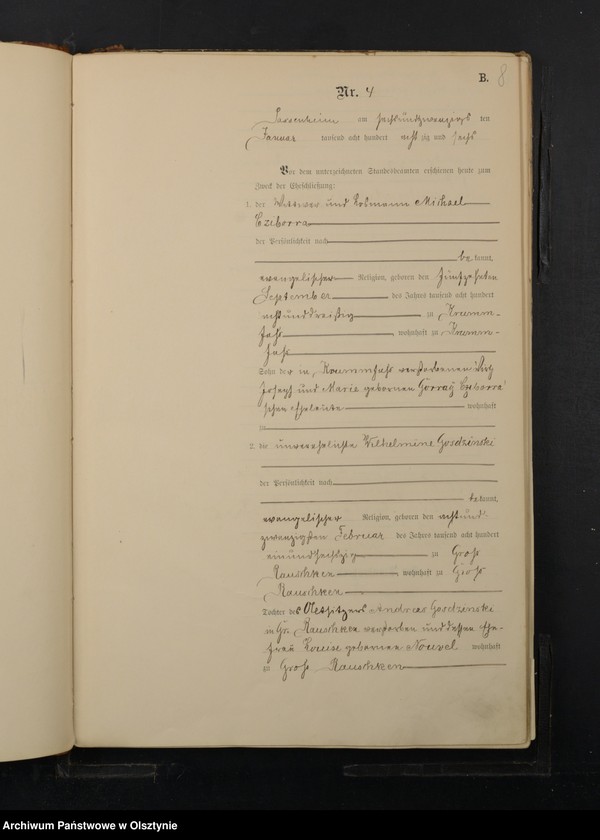 B.
8
Nr. 4
am sechsundzwanzigs ten
Januar tausend acht hundert acht zig und sechs
Vor dem unterzeichneten Standesbeamten erschienen heute zum
Zweck der Eheschließung:
1. der Wittwer und Michael
Cziborra
der Persönlichkeit nach
be kannt,
evangelischer Religion, geboren den fünfzehnten
September des Jahres tausend acht hundert
achtunddreißig zu Krumm-
fuß wohnhaft zu Krumm-
fuß
Sohn der in Krummfuß verstorbenen
Joseph und Marie gebornen Gorray Cziborra'
schen Eheleute wohnhaft
zu
2. die unverehelichte Wilhelmine Gosdzinski
der Persönlichkeit nach
be kannt,
evangelischer Religion, geboren den achtund-
zwanzigsten Februar des Jahres tausend acht hundert
einundsechszig zu Groß
Rauschken wohnhaft zu Groß
Rauschken
Tochter des Besitzers Andreas Gosdzinski
in Gr. Rauschken verstorben und dessen Ehe-
frau Louise gebornen Nowel wohnhaft
zu Groß Rauschken
Archiwum Państwowe w Olsztynie